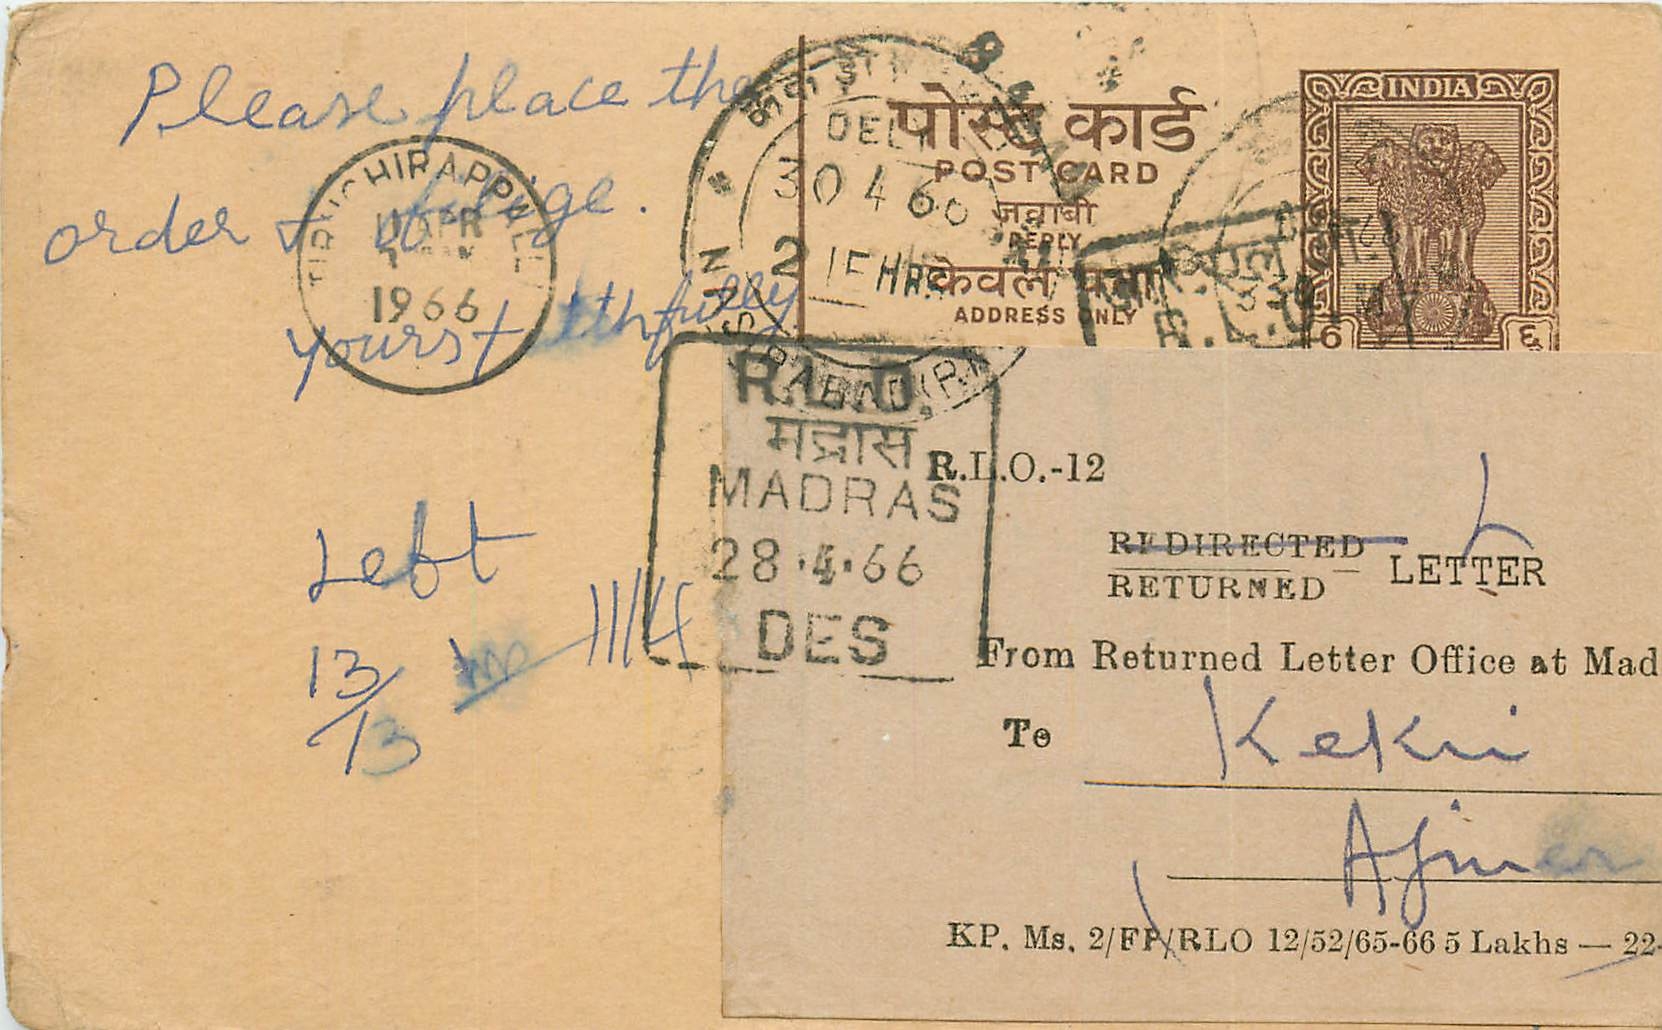 Please place the
order & oblige.
yours
TIRUCHIRAPPALLI
11 APR
1966
Left
13/13
11/4
पोस्ट कार्ड
POST CARD
जवाबी
REPLY
केवल पता
ADDRESS ONLY
INDIA
6
६
DEL
R.L.O.
मद्रास
MADRAS
28.4.66
DES
R.L.O.-12
REDIRECTED
RETURNED
LETTER
From Returned Letter Office at Mad
To
Kekri
Ajmer
KP. Ms. 2/FP/RLO 12/52/65-66 5 Lakhs — 22-